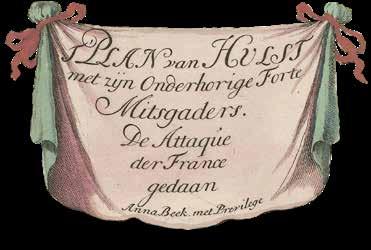 'T PLAN van HULST
met zijn Onderhorige Forte
Mitsgaders.
De Attaque
der France
gedaan
Anna Beek. met Previlege